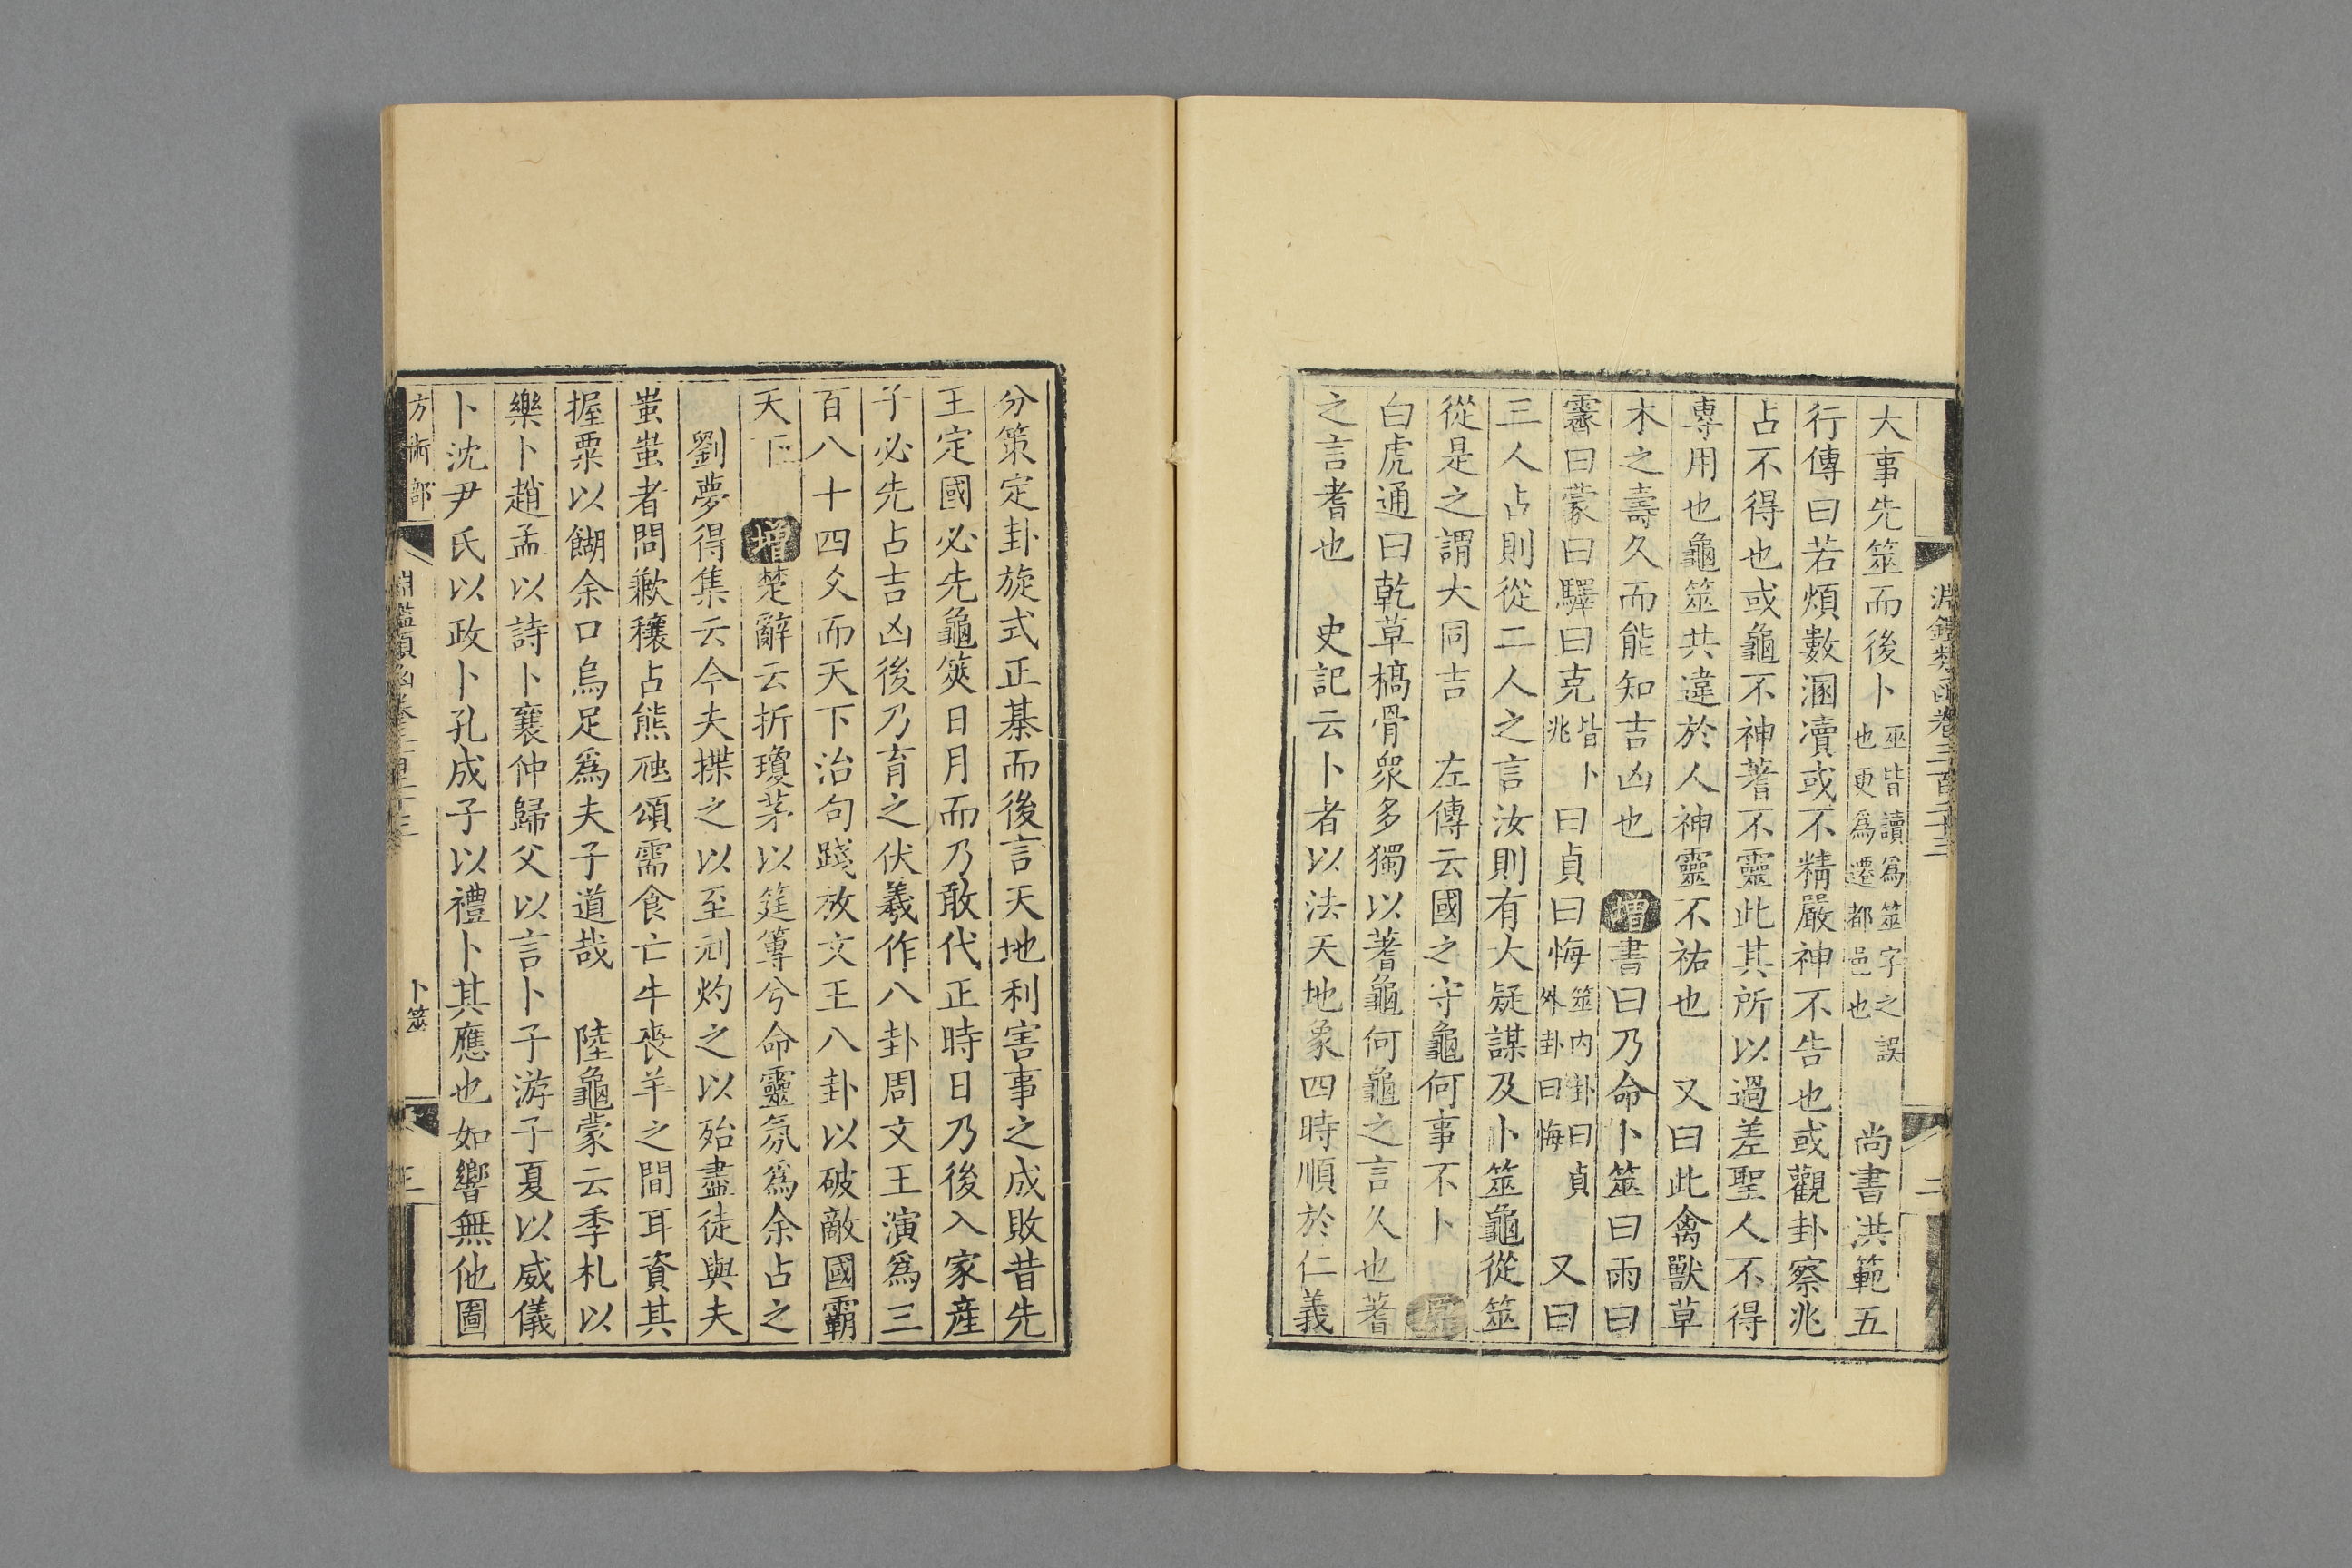 淵鑑類函卷三百二十三
二
大事先筮而後卜巫皆讀爲筮字之誤也更爲遷都邑也 尚書洪範五
行傳曰若煩數溷瀆或不精嚴神不告也或觀卦察兆
占不得也或龜不神蓍不靈此其所以過差聖人不得
專用也龜筮共違於人神靈不祐也 又曰此禽獸草
木之壽久而能知吉凶也 增書曰乃命卜筮曰雨曰
霽曰蒙曰驛曰克皆卜兆曰貞曰悔筮内卦曰貞外卦曰悔 又曰
三人占則從二人之言汝則有大疑謀及卜筮龜從筮
從是之謂大同吉 左傳云國之守龜何事不卜 原
白虎通曰乾草槁骨衆多獨以蓍龜何龜之言久也蓍
之言耆也 史記云卜者以法天地象四時順於仁義
分策定卦旋式正棊而後言天地利害事之成敗昔先
王定國必先龜筴日月而乃敢代正時日乃後入家產
子必先占吉凶後乃育之伏羲作八卦周文王演爲三
百八十四爻而天下治句踐放文王八卦以破敵國霸
天下 增楚辭云折瓊茅以筳篿兮命靈氛爲余占之
劉夢得集云今夫揲之以至刓灼之以殆盡徒與夫
蚩蚩者問歉穰占熊虺頌需食亡牛喪羊之間耳資其
握粟以餬余口烏足爲夫子道哉 陸龜蒙云季札以
樂卜趙孟以詩卜襄仲歸父以言卜子游子夏以威儀
卜沈尹氏以政卜孔成子以禮卜其應也如響無他圖
方術部
卜筮
三